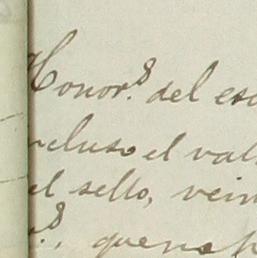 Honor.s del esc
ncluso el val
el sello, vein
r.s, que no p